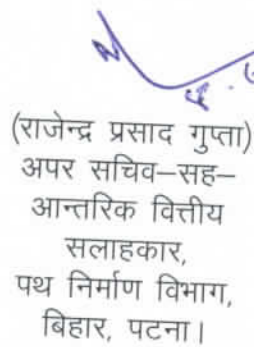 (राजेन्द्र प्रसाद गुप्ता)
अपर सचिव–सह–
आन्तरिक वित्तीय
सलाहकार,
पथ निर्माण विभाग,
बिहार, पटना।